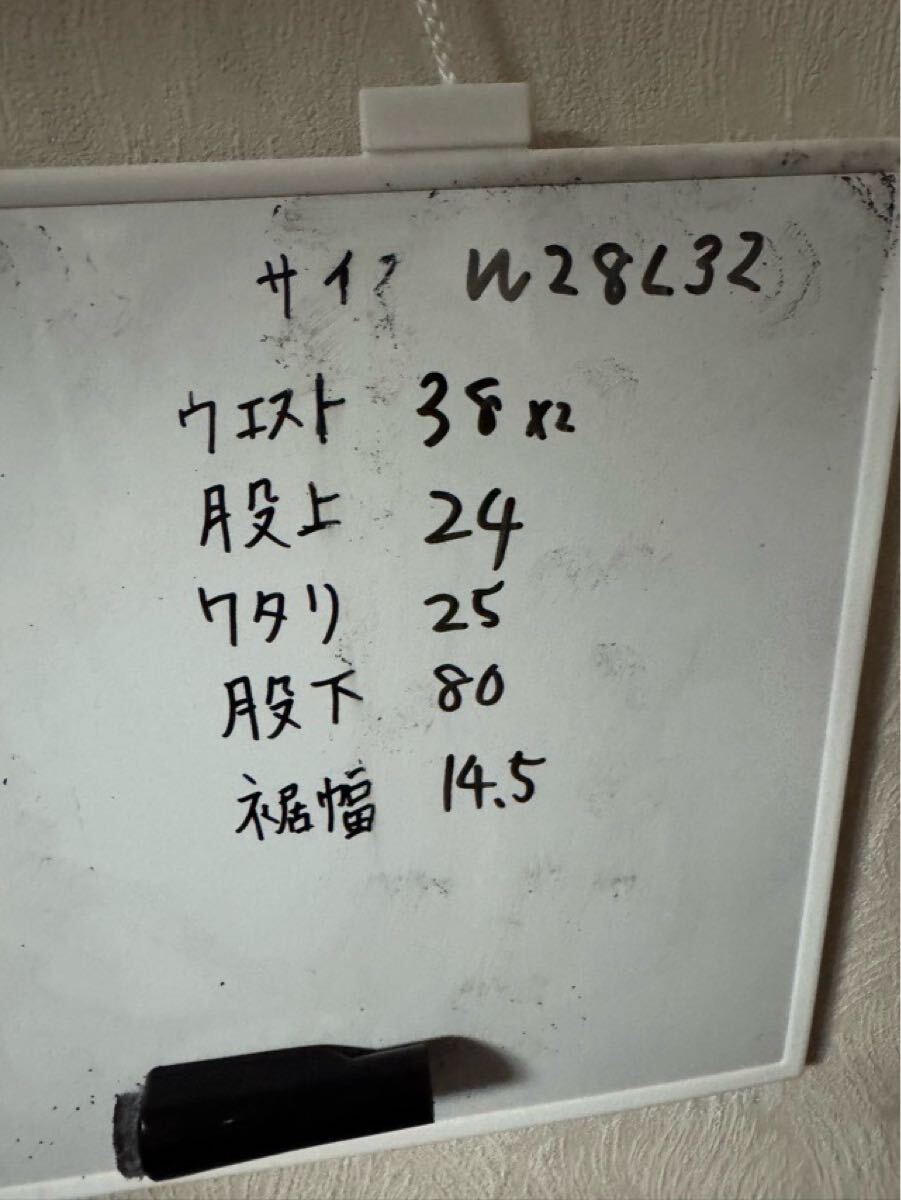 サイズ W28L32
ウエスト 38x2
股上 24
ワタリ 25
股下 80
裾幅 14.5